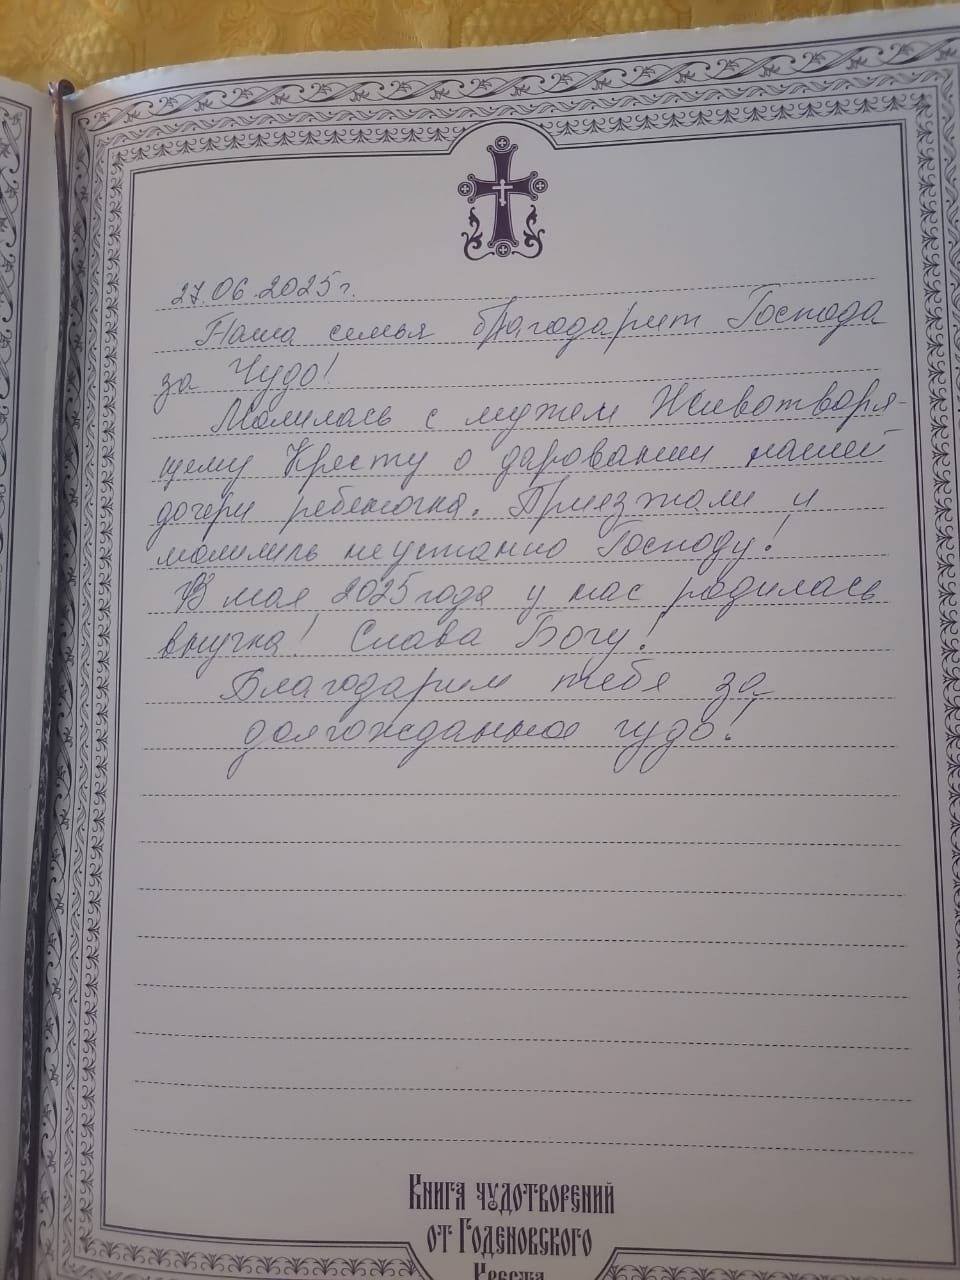 27.06.2025г.
Наша семья благодарит Господа
за Чудо!
Молилась с мужем Животворя-
щему Кресту о даровании нашей
дочери ребеночка. Приезжали и
молились неустанно Господу!
В мая 2025 года у нас родилась
внучка! Слава Богу!
Благодарим тебя за
долгожданное чудо!
Книга чудотворений
от Годеновского
Креста